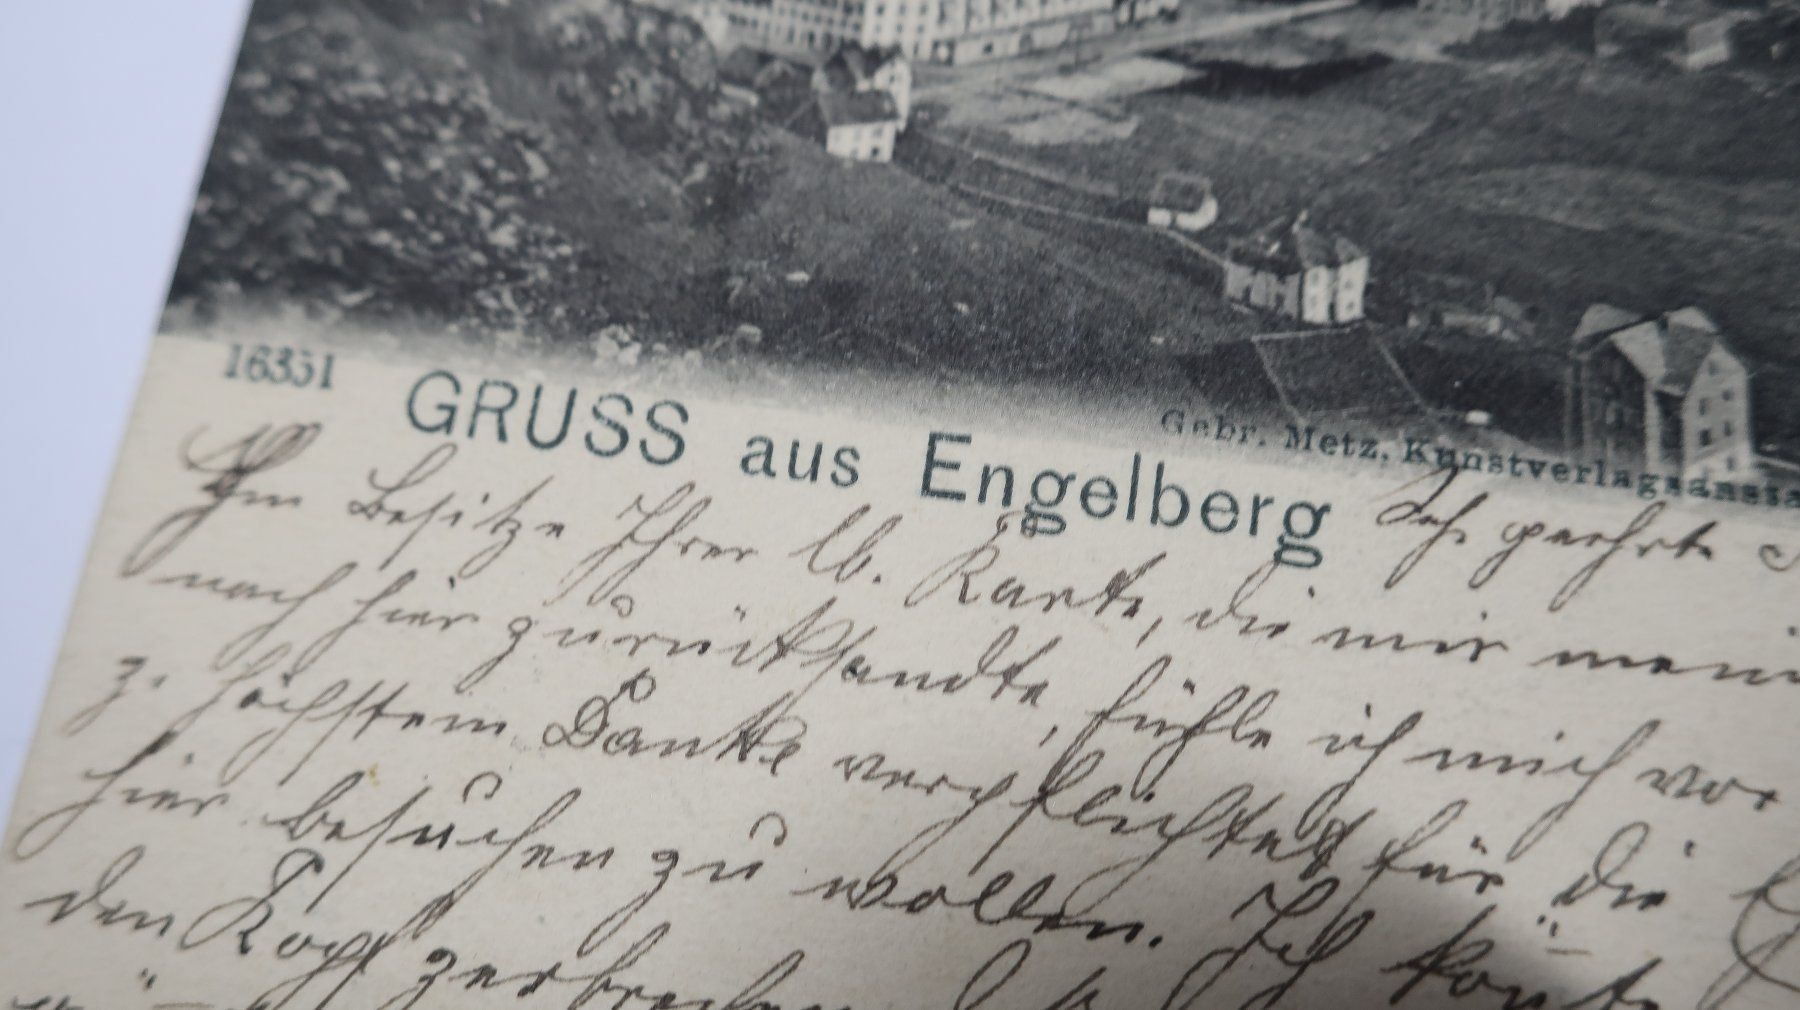 16351
GRUSS aus Engelberg
Gebr. Metz, Kunstverlagsansta
Sehr geehrte
Im Besitze Ihrer lb. Karte, die mir mein
nach hier zurücksandte, fühle ich mich vor
z. höchstem Danke verpflichtet für die
hier besuchen zu wollen. Ich könte
den Kopf zerbrechen